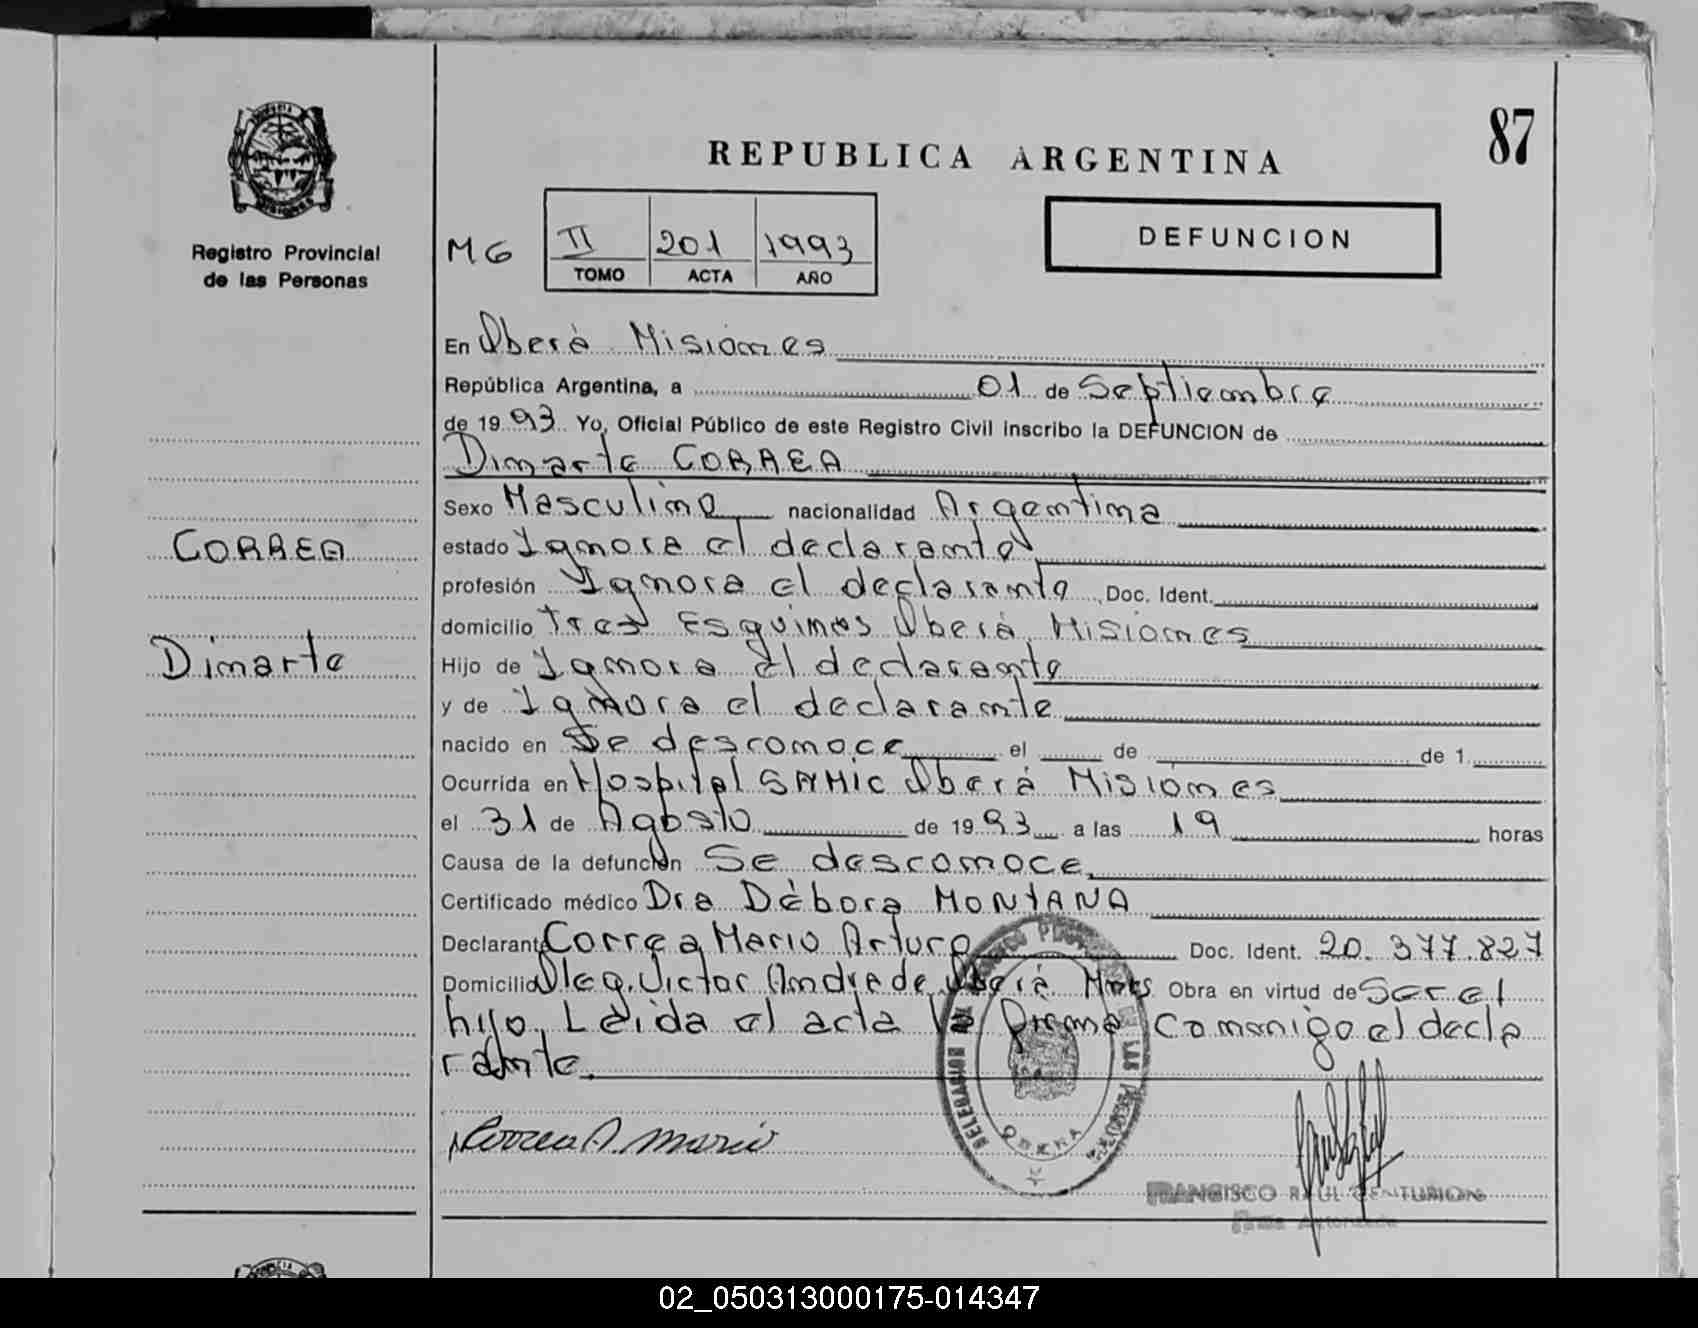 REPUBLICA ARGENTINA
87
Registro Provincial
de las Personas
MG
II 201 1993
TOMO ACTA AÑO
DEFUNCION
CORREA
Dimarte
En Oberá Misiones
República Argentina, a 01 de Septiembre
de 1993 Yo, Oficial Público de este Registro Civil inscribo la DEFUNCION de
Dimarte CORREA
Sexo Masculino nacionalidad Argentina
estado Ignora el declarante
profesión Ignora el declarante Doc. Ident.
domicilio Tres Esquinas Oberá Misiones
Hijo de Ignora el declarante
y de Ignora el declarante
nacido en Se desconoce el de de 1
Ocurrida en Hospital SAMIC Oberá Misiones
el 31 de Agosto de 1993 a las 19 horas
Causa de la defunción Se desconoce
Certificado médico Dra Débora MONTANA
Declarante Correa Mario Arturo Doc. Ident. 20.377.827
Domicilio Oleg. Victor Andrade Oberá Mnes Obra en virtud de Ser el
hijo. Leida el acta la firma comonigo el decla
rante.
Correa A. Mario
DELEGACION DEL LAS
OBERA
FRANCISCO RAUL CENTURION
Firma Autorizada
02_050313000175-014347